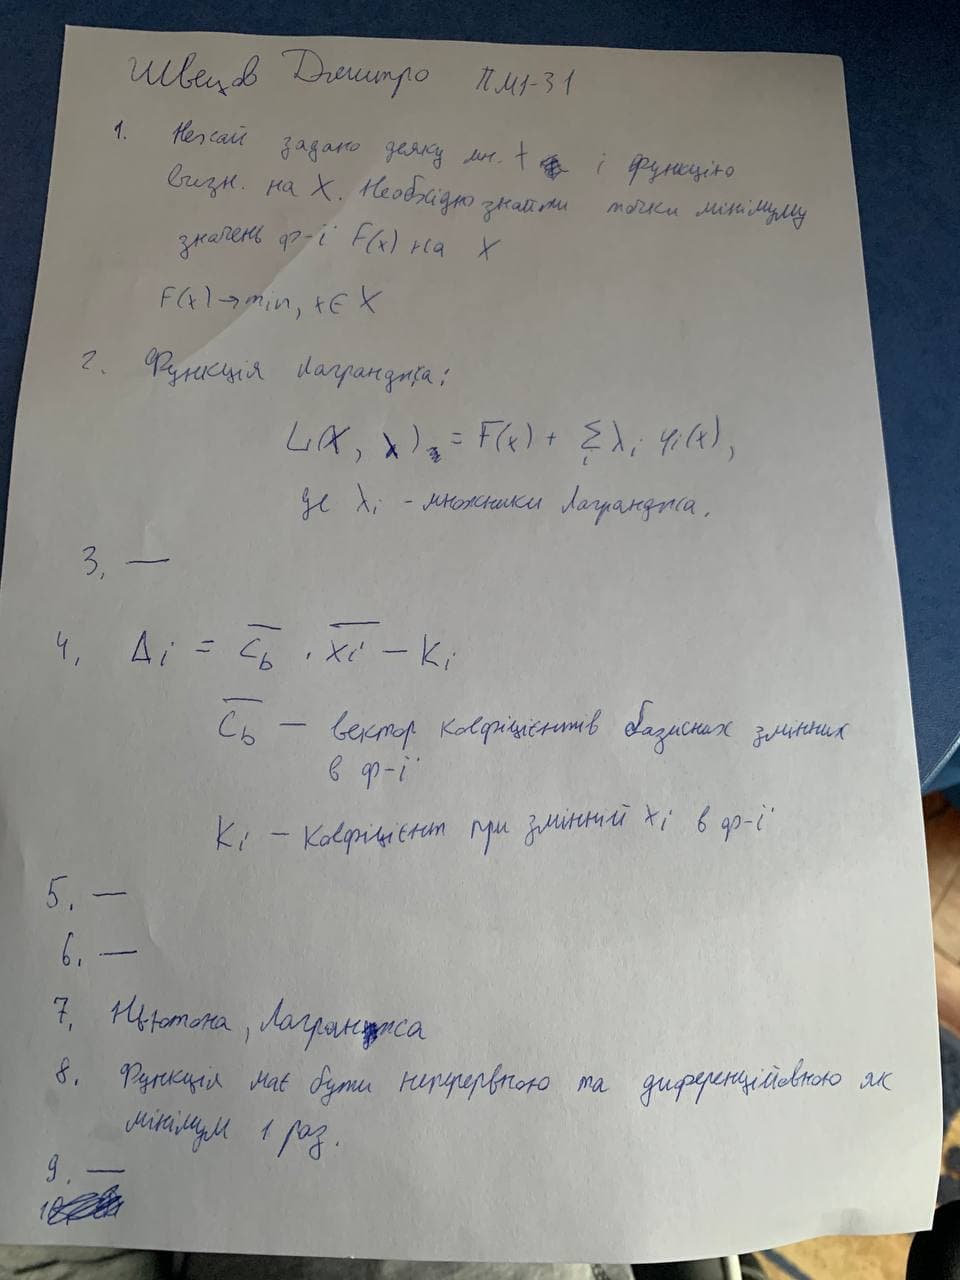 Швецов Дмитро ПМІ-31
1. Нехай задано деяку мн. X і функцію
визн. на X. Необхідно знайти точки мінімуму
значень ф-ії F(x) на X
F(x) → min, x ∈ X
2. Функція Лагранджа:
L(X, λ) = F(x) + Σ λi φi(x),
i
де λi - множники Лагранджа.
3. —
4. Δi = Cb · xi — Ki
Cb — вектор коефіцієнтів базисних змінних
в ф-ії
Ki — коефіцієнт при змінній xi в ф-ії
5. —
6. —
7. Ньютона, Лагранжса
8. Функція має бути неперервною та диференційовною як
мінімум 1 раз.
9. —